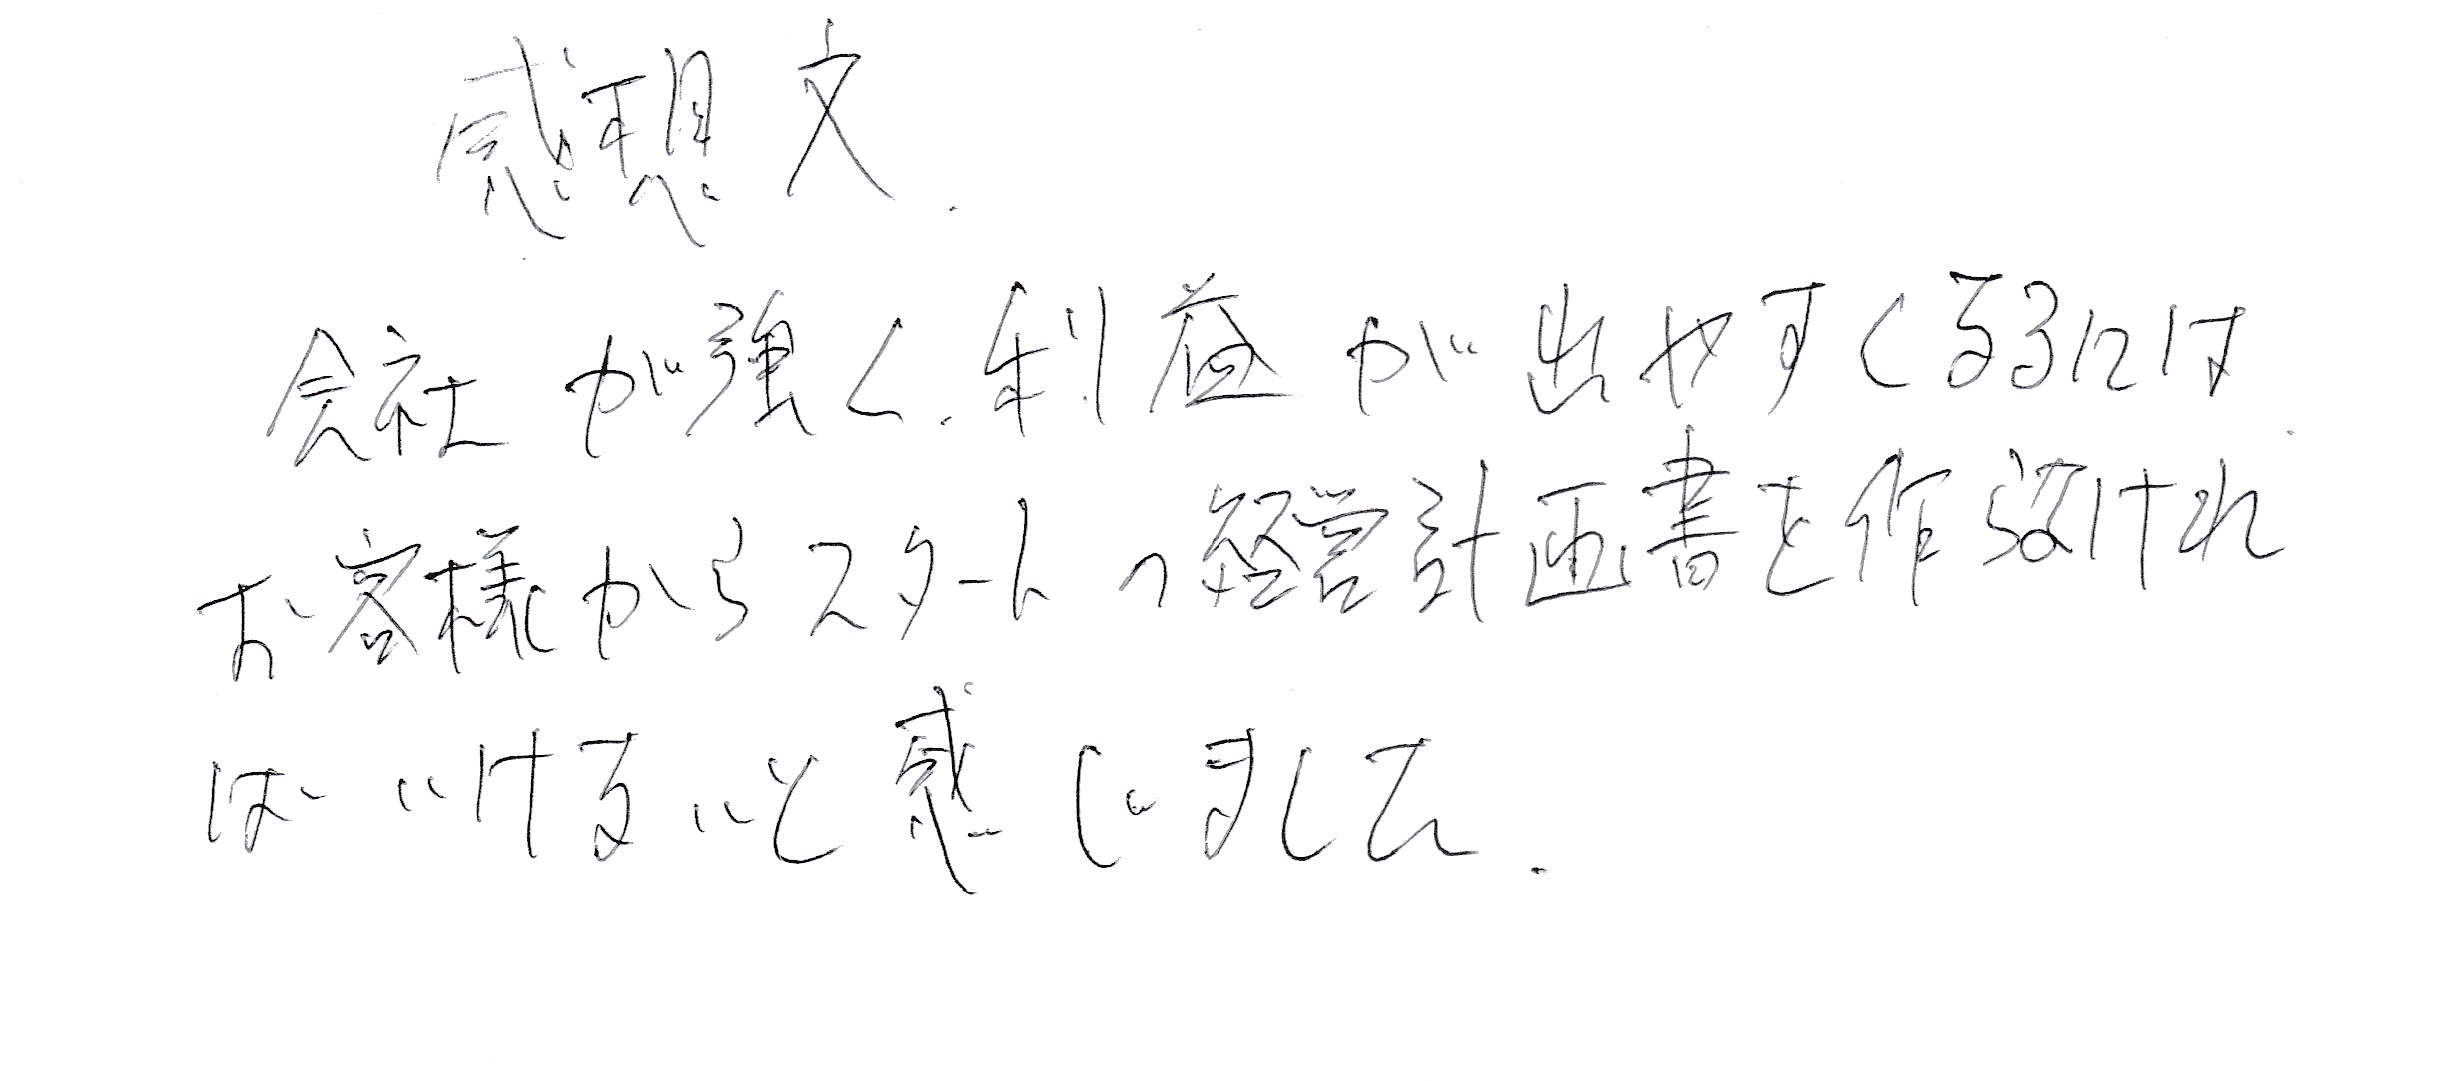 感想文.
会社が強く、利益が出やすくなるには
お客様からスタートの経営計画書を作らなけれ
ばいけないと感じました.